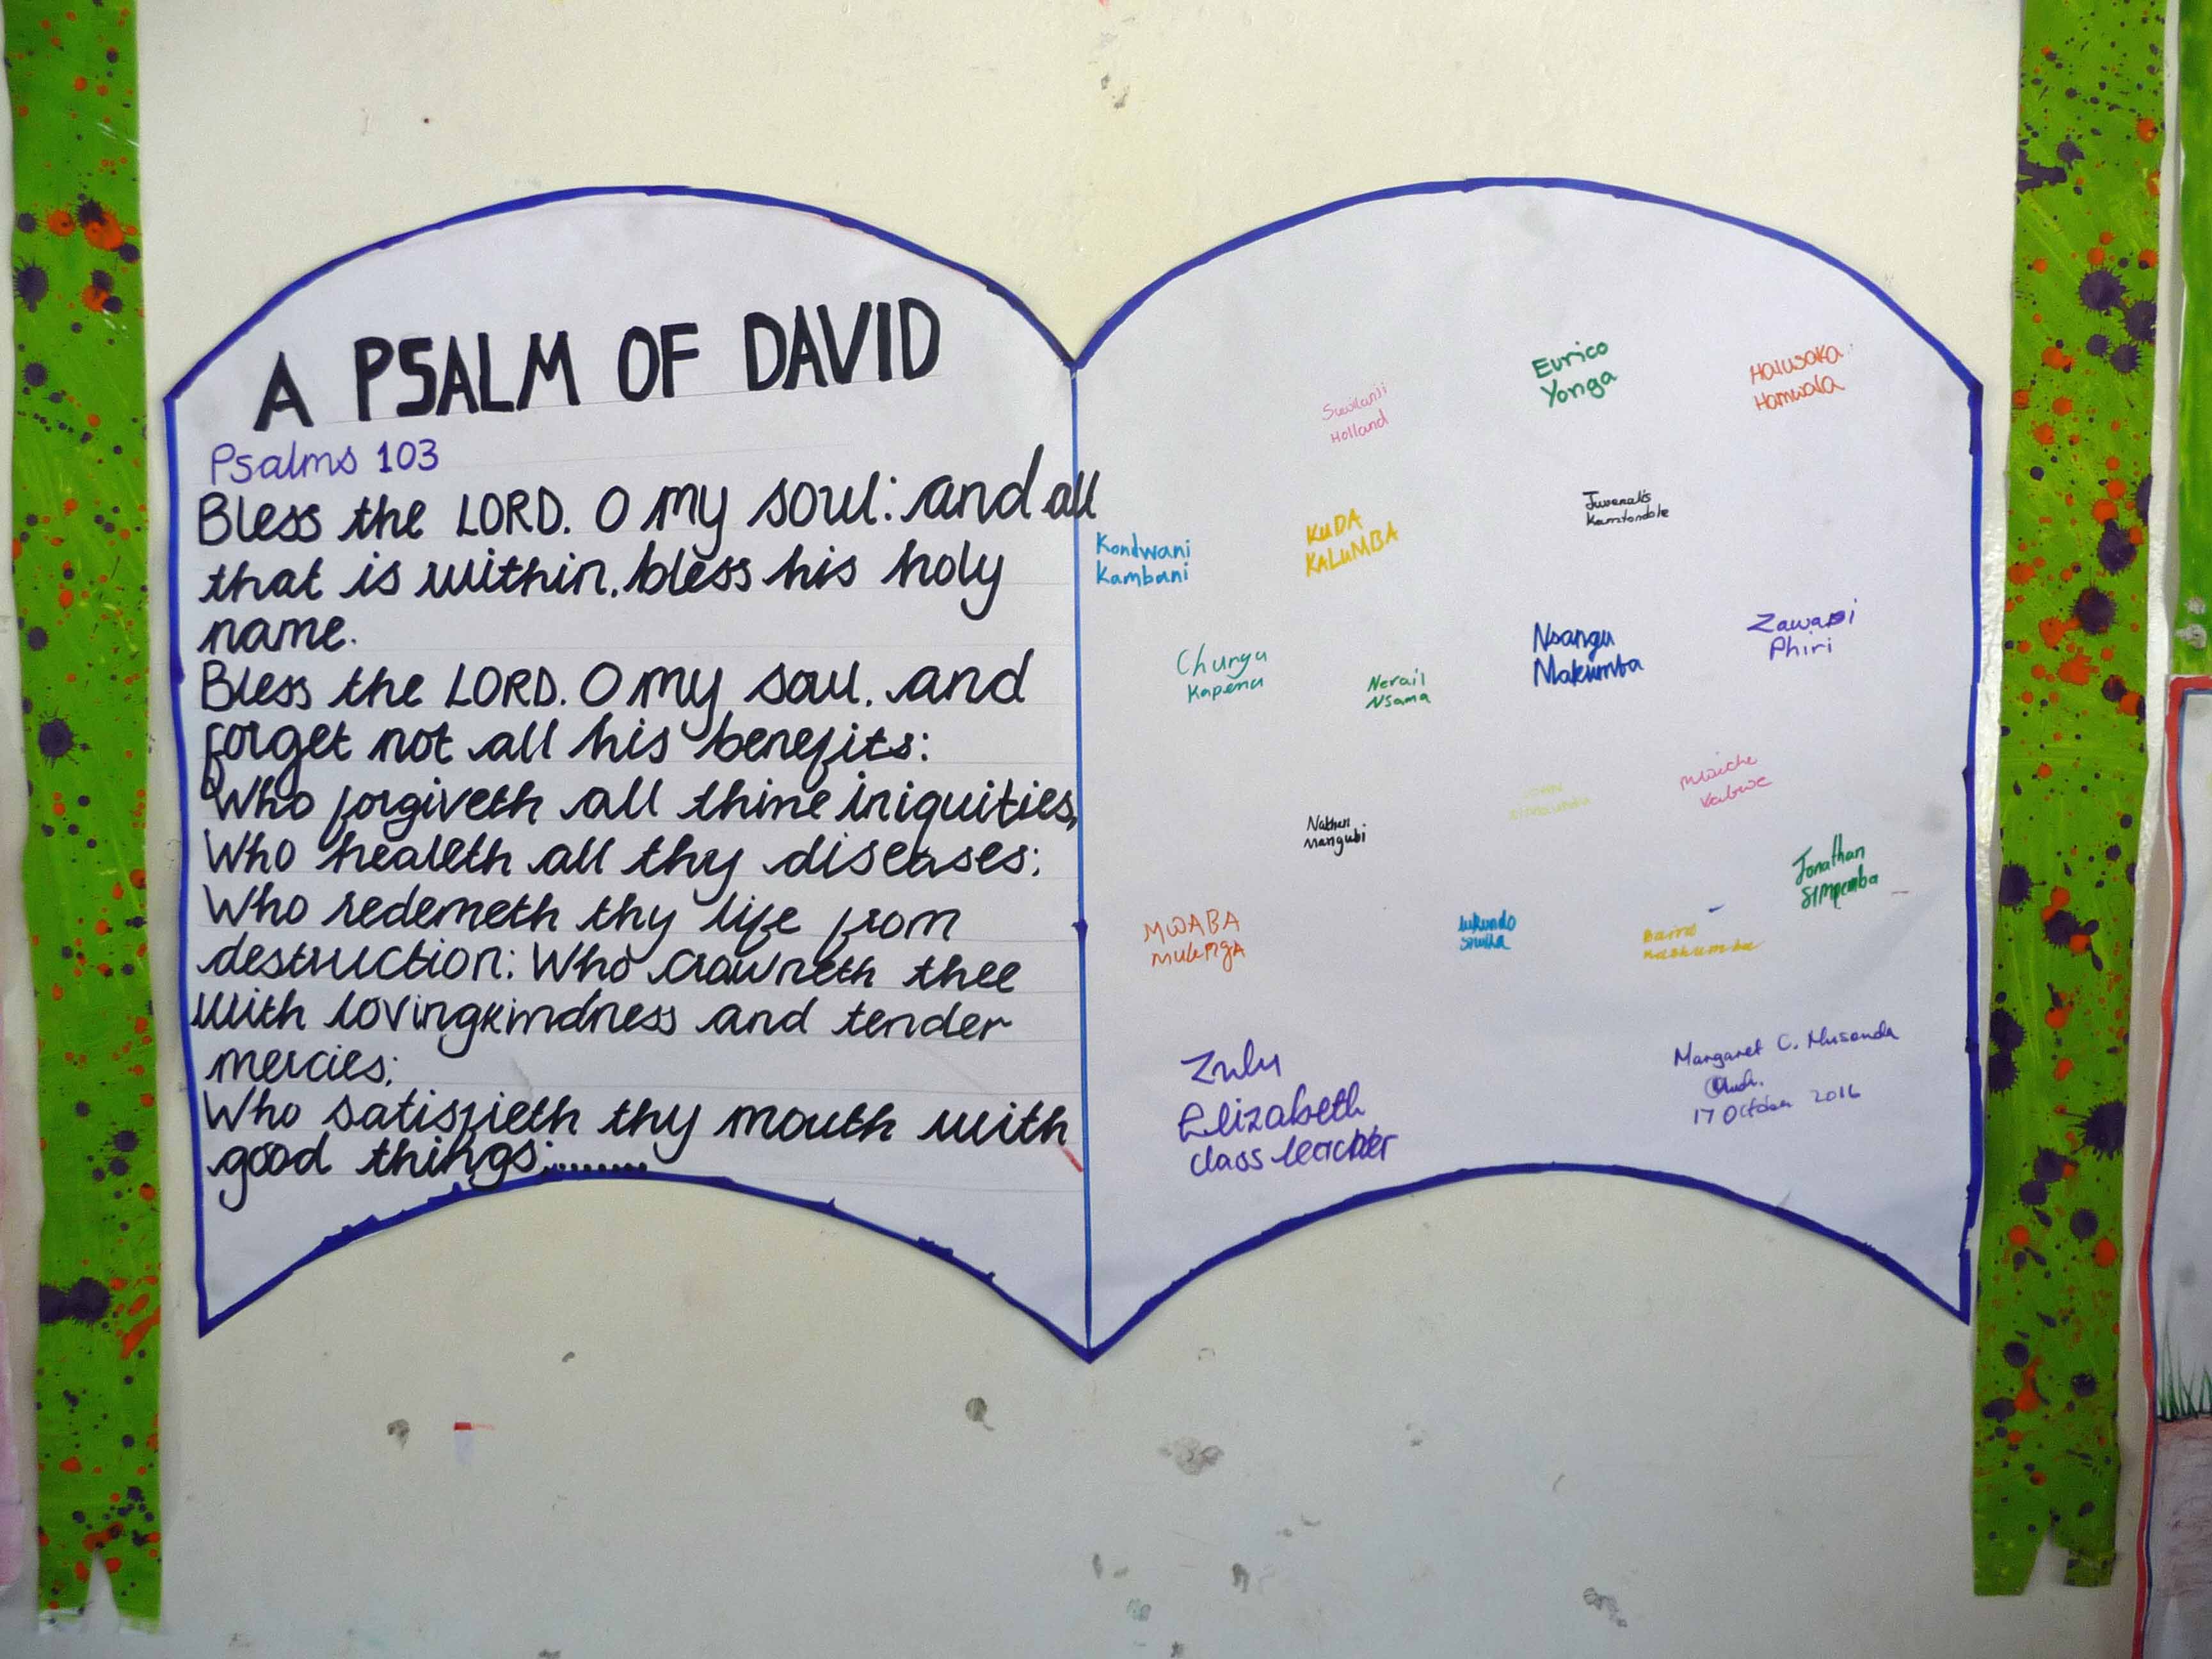 A PSALM OF DAVID
Psalms 103
Bless the LORD. O my soul: and all
that is within. bless his holy
name.
Bless the LORD. O my soul. and
forget not all his benefits:
Who forgiveth all thine iniquities,
Who healeth all thy diseases;
Who redemeth thy life from
destruction; Who crowneth thee
with lovingkindness and tender
mercies;
Who satisfieth thy mouth with
good things:........
Suwilanji
Holland
Eurico
Yonga
Halusaka
Hamwala
Kondwani
Kambani
KUDA
KALUMBA
Juvenalis
Kamtondole
Chungu
Kapema
Nerail
Nsama
Nsangu
Makumba
Zawadi
Phiri
Nathan
Mangubi
Mwiche
Kabwe
Jonathan
Simpemba
MWABA
Mulenga
lukundo
Zulu
Elizabeth
class teacher
Margaret C. Musonda
17 October 2016